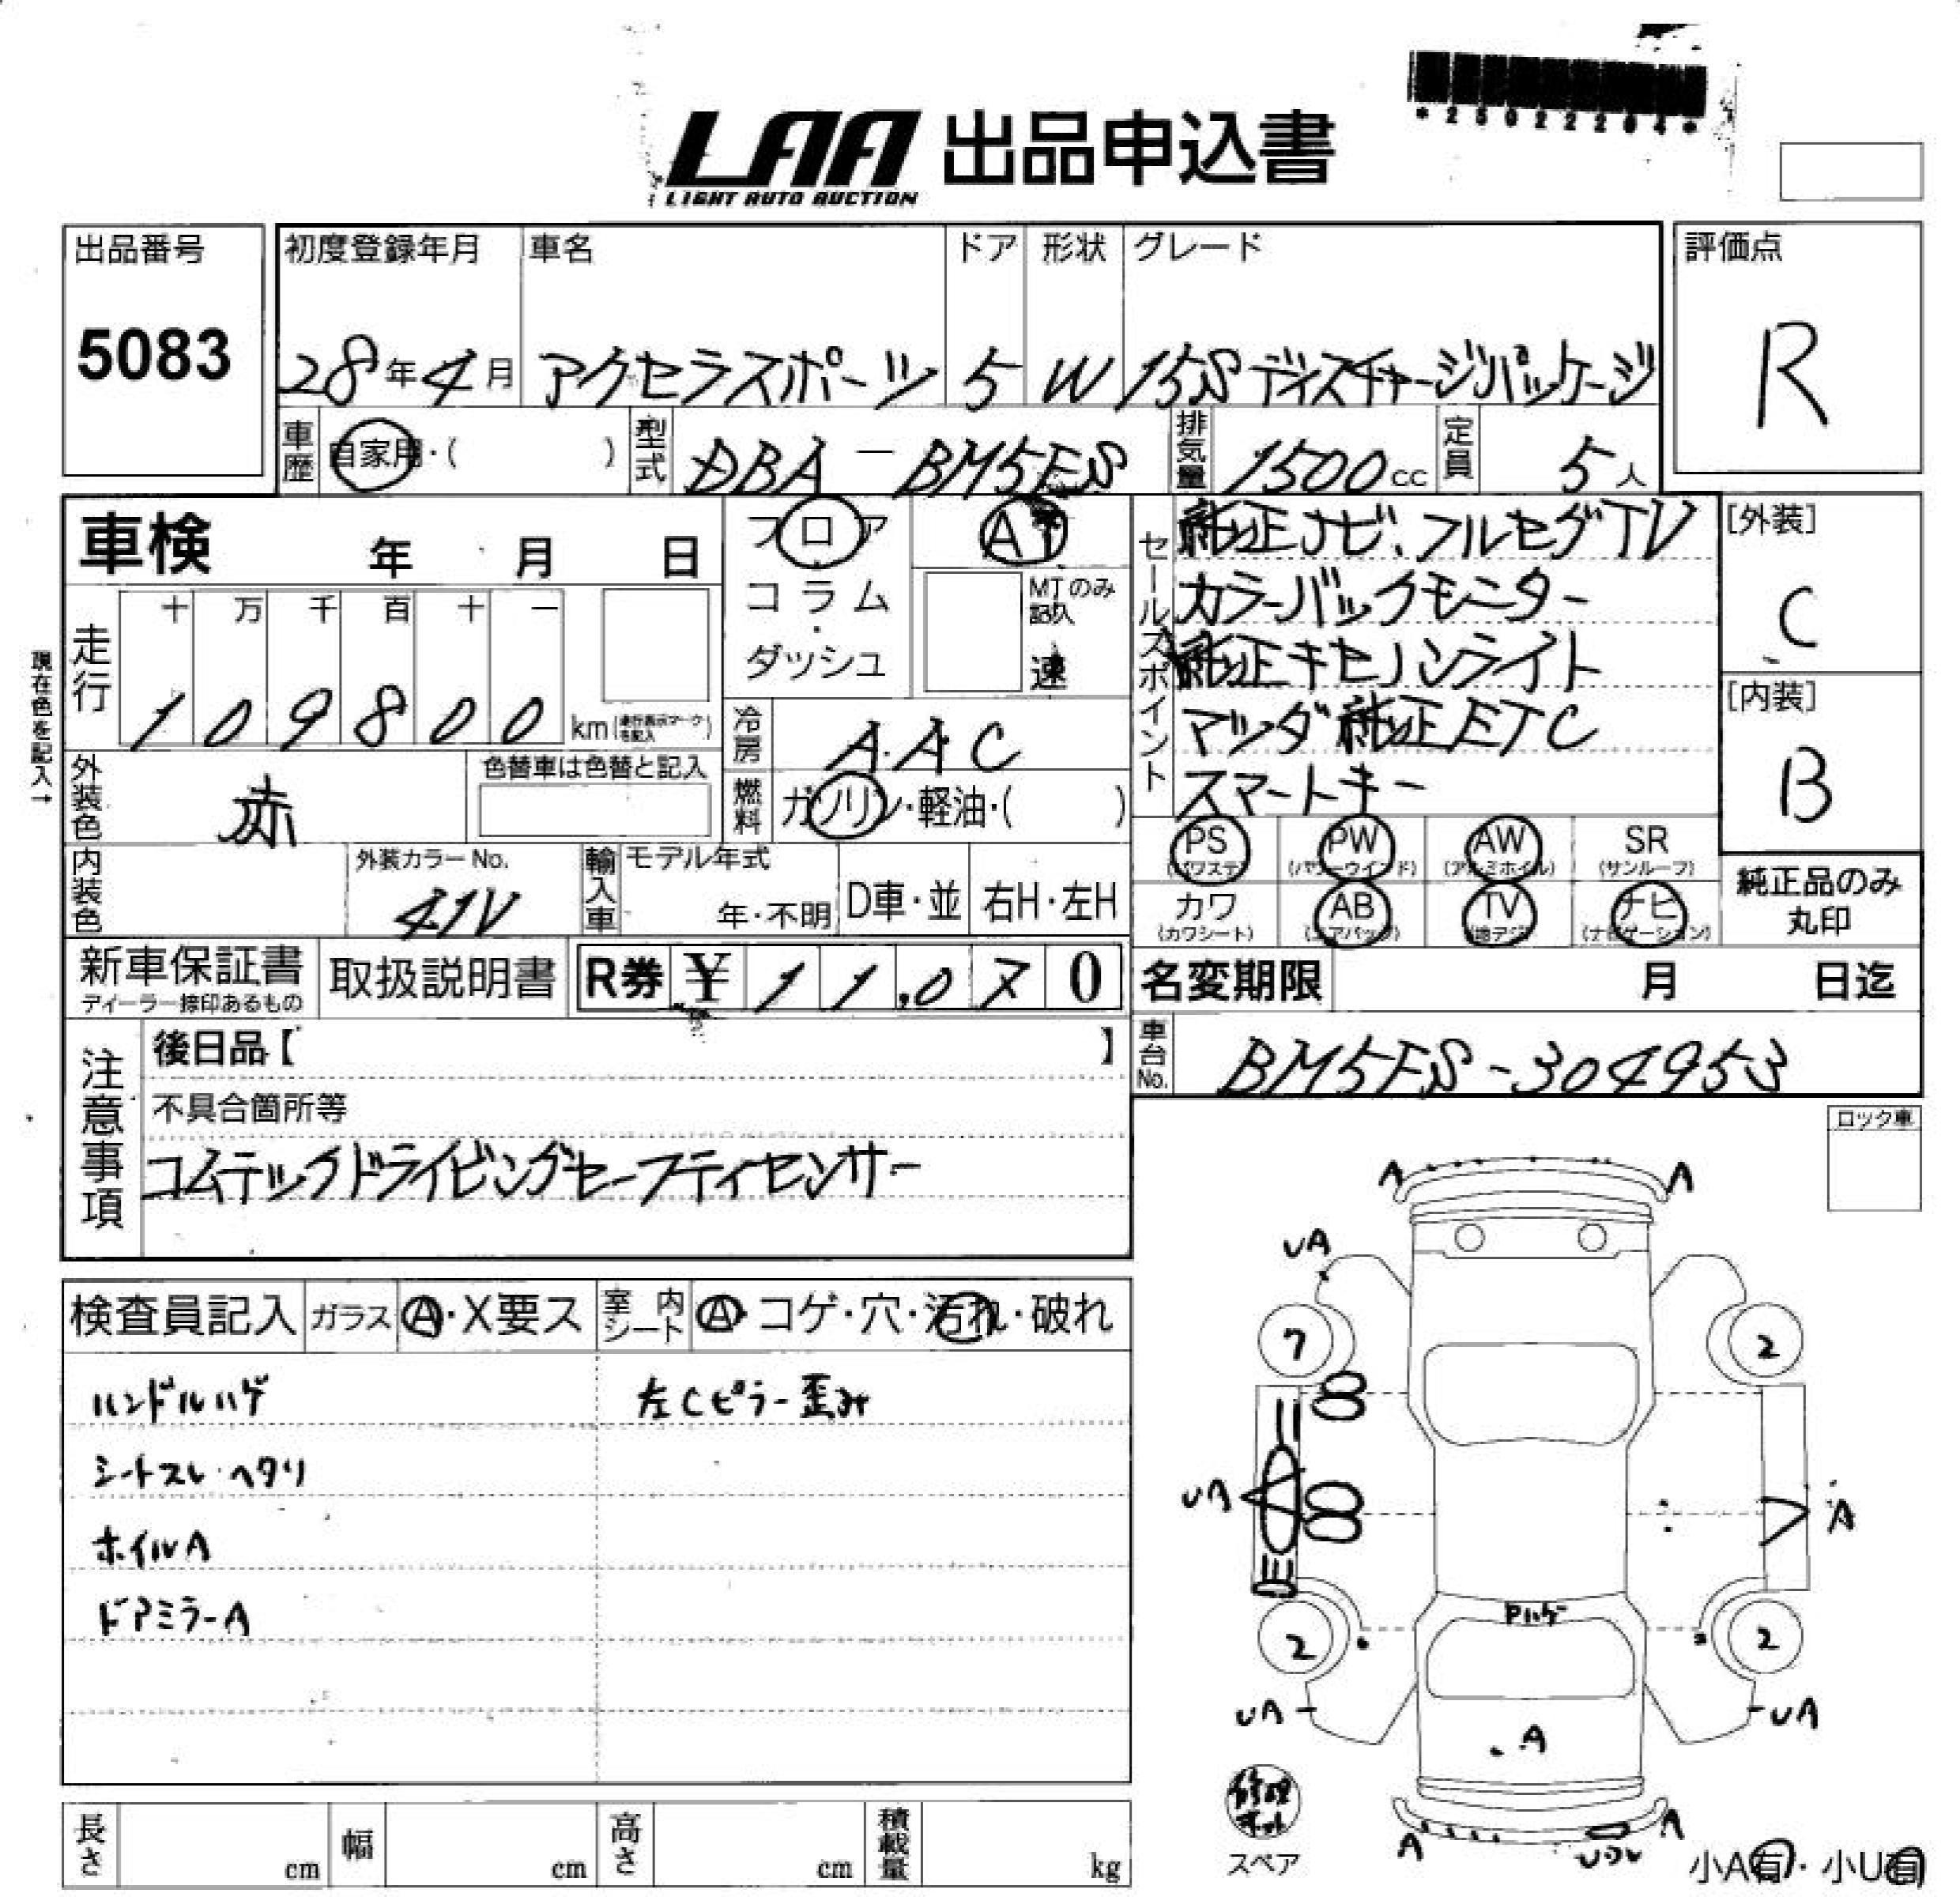 *25022204*
LAA 出品申込書
LIGHT AUTO AUCTION
出品番号
5083
初度登録年月
28年4月
車名
アクセラスポーツ
ドア
5
形状
W
グレード
15S ディスチャージパッケージ
評価点
R
車歴
自家用・( )
型式
DBA-BM5FS
排気量
1500cc
定員
5人
車検 年 月 日
フロア
・
コラム
・
ダッシュ
AT
MTのみ
記入
速
セールスポイント
純正ナビ、フルセグTV
カラーバックモニター
純正キセノンライト
マツダ純正ETC
スマートキー
[外装]
C
[内装]
B
現在色を記入→
走行
十 万 千 百 十 一
1 0 9 8 0 0 km (走行表示マークを記入)
冷房
A.A.C
燃料
ガソリン・軽油・( )
外装色
赤
色替車は色替と記入
内装色
外装カラーNo.
41V
輸入車
モデル年式
年・不明
D車・並
右H・左H
PS
(パワステ)
PW
(パワーウインド)
AW
(アルミホイル)
SR
(サンルーフ)
カワ
(カワシート)
AB
(エアバッグ)
TV
(地デジ)
ナビ
(ナビゲーション)
純正品のみ
丸印
新車保証書
ディーラー捺印あるもの
取扱説明書
R券 ¥ 1 1,0 7 0
名変期限 月 日迄
車台No.
BM5FS-304953
注意事項
後日品【 】
不具合箇所等
コムテックドライビングセーフティセンサー
ロック車
検査員記入
ガラス
A・X要ス
室内
シート
A・コゲ・穴・汚れ・破れ
ハンドルハゲ
左Cピラー歪み
シートスレ・ヘタリ
ホイルA
ドアミラーA
A A
UA
7 2
UA A
Pハゲ
2 2
UA UA
A
修理キット
スペア
A A
小A有・小U有
長さ cm
幅 cm
高さ cm
積載量 kg